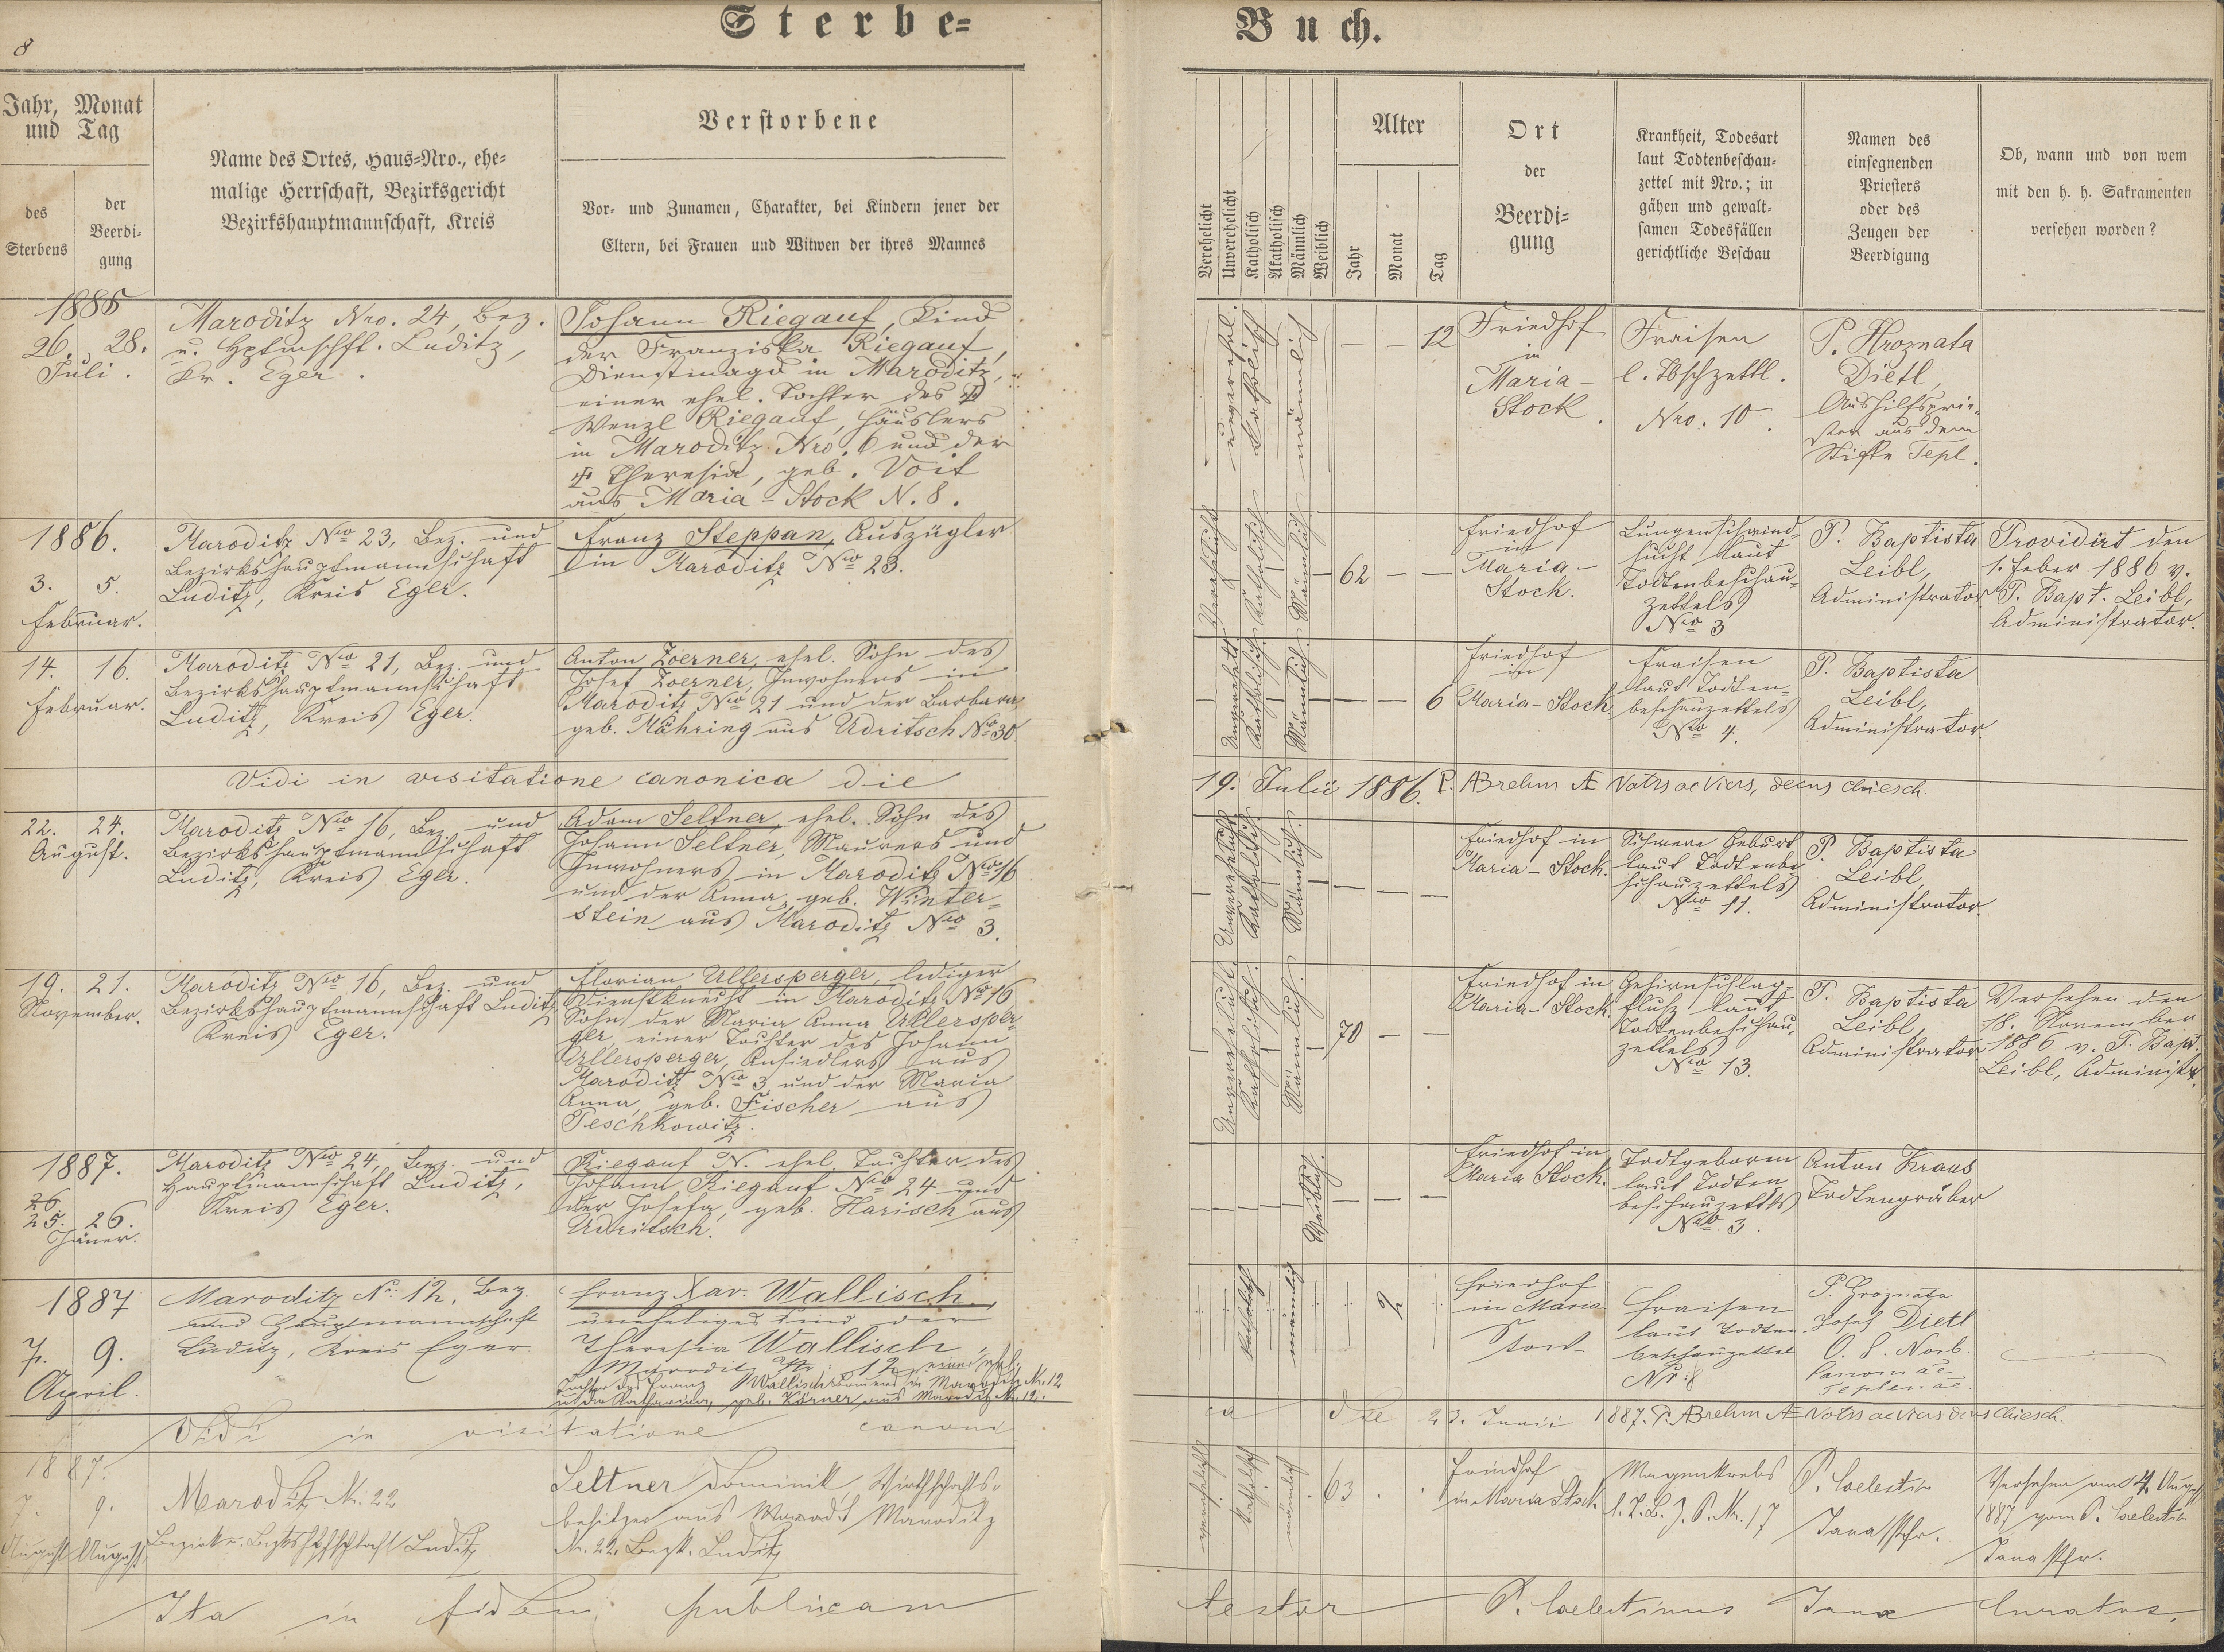 8
Sterbe-
Buch.
Jahr, Monat
und Tag
des
Sterbens
der
Beerdi-
gung
Name des Ortes, Haus-Nro., ehe-
malige Herrschaft, Bezirksgericht
Bezirkshauptmannschaft, Kreis
Verstorbene
Vor- und Zunamen, Charakter, bei Kindern jener der
Eltern, bei Frauen und Witwen der ihres Mannes
Verehelicht
Unverehelicht
Katholisch
Akatholisch
Männlich
Weiblich
Alter
Jahr
Monat
Tag
Ort
der
Beerdi-
gung
Krankheit, Todesart
laut Todtenbeschau-
zettel mit Nro.; in
gähen und gewalt-
samen Todesfällen
gerichtliche Beschau
Namen des
einsegnenden
Priesters
oder des
Zeugen der
Beerdigung
Ob, wann und von wem
mit den h. h. Sakramenten
versehen worden?
1885
26. 28.
Juli.
Maroditz Nro. 24, Bez.
u. Hptmschft. Luditz,
Kr. Eger.
Johann Riegauf, Kind
der Franziska Riegauf,
Dienstmagd in Maroditz,
einer ehel. Tochter des
Wenzl Riegauf, Häuslers
in Maroditz Nro. 6 und der
Theresia, geb. Voit
aus Maria-Stock N. 8.
katholisch
männlich
— — 12
Friedhof
in
Maria-
Stock.
Fraisen
l. Tbschzettl.
Nro. 10.
P. Hroznata
Dietl,
Aushilfsprie-
ster aus dem
Stifte Tepl.
1886.
3. 5.
Februar.
Maroditz Nro 23, Bez. und
Bezirkshauptmannschaft
Luditz, Kreis Eger.
Franz Steppan, Auszügler
in Maroditz Nro 23.
Verehelicht
Katholisch
Männlich
62 — —
Friedhof
in
Maria-
Stock.
Lungenschwind-
sucht laut
Todtenbeschau-
zettels
Nro 3
P. Baptista
Leibl,
Administrator
Providirt den
1. Feber 1886 v.
P. Bapt. Leibl,
Administrator.
14. 16.
Februar.
Maroditz Nro 21, Bez. und
Bezirkshauptmannschaft
Luditz, Kreis Eger.
Anton Zoerner, ehel. Sohn des
Josef Zoerner, Inwohners in
Maroditz Nro 21 und der Barbara
geb. Mähring aus Udritsch No 30.
Unverehelicht
Katholisch
Männlich
— — 6
Friedhof
in
Maria-Stock.
Fraisen
laut Todten-
beschauzettels
Nro 4.
P. Baptista
Leibl,
Administrator.
Vidi in visitatione canonica die
19. Julii 1886. P. ABrehm
22. 24.
August.
Maroditz Nro 16, Bez. und
Bezirkshauptmannschaft
Luditz, Kreis Eger.
Adam Seltner, ehel. Sohn des
Johann Seltner, Maurers und
Inwohners in Maroditz Nro 16
und der Anna, geb. Winter-
stein aus Maroditz Nro 3.
Unverehelicht
Katholisch
Männlich.
— — —
Friedhof in
Maria-Stock.
Schwere Geburt
laut Todtenbe-
schauzettels
Nro 11.
P. Baptista
Leibl,
Administrator.
19. 21.
November.
Maroditz Nro 16, Bez. und
Bezirkshauptmannschaft Luditz
Kreis Eger.
Florian Ullersperger, lediger
Dienstknecht in Maroditz Nro 16
Sohn der Maria Anna Ullersper-
ger, einer Tochter des Johann
Ullersperger, Ansiedlers aus
Maroditz Nro 3 und der Maria
Anna, geb. Fischer aus
Teschkowitz.
Unverehelicht
Katholisch.
Männlich.
70 — —
Friedhof in
Maria-Stock.
Gehirnschlag-
fluß laut
Todtenbeschau-
zettels
Nro 13.
P. Baptista
Leibl,
Administrator.
Versehen den
18. November
1886 v. P. Bapt.
Leibl, Administr.
1887.
26.
25. 26.
Jäner.
Maroditz Nro 24, Bez. und
Hauptmannschaft Luditz,
Kreis Eger.
Riegauf N. ehel. Tochter des
Johann Riegauf Nro 24 und
der Josefa, geb. Harisch aus
Udritsch.
Weiblich.
— — —
Friedhof in
Maria Stock.
Todtgeboren
laut Todten
beschauzettls
Nro. 3.
Anton Kraus
Todtengräber
1887
7. 9.
April.
Maroditz Nr. 12, Bez.
und Hauptmannschaft
Luditz, Kreis Eger
Franz Xav. Wallisch,
uneheliges Kind der
Theresia Wallisch,
Maroditz Nr. 12 einer ehel.
Tochter des Franz Wallisch in Maroditz Nr. 12
u. der Katharina, geb. Körner aus Maroditz Nr. 12.
katholisch
männlich
2
Friedhof
in Maria
Stock
Fraisen
laut Todten-
beschauzettel
Nr. 8
P. Hroznata
Josef Dietl
O. S. Norb.
Canoniae
Teplenae.
Vidi in visitatione canoni
ca die 23. Junii 1887. P. ABrehm
1887.
7. 9.
August August
Maroditz Nr. 22
Luditz
Seltner Dominik, Wirthschafts-
besitzer aus Maroditz
Nr. 22. Bezk. Luditz
verehelicht
katholisch
männlich
63
Friedhof
in Maria Stock
Magenkrebs
l. T. B. Z. Nr. 17
P. Coelestin
Jana Pfr.
Versehen am 4. August
1887 vom P. Coelestin
Jana Pfr.
Ita in fidem publicam
testor P. Coelestinus Jana Curatus.